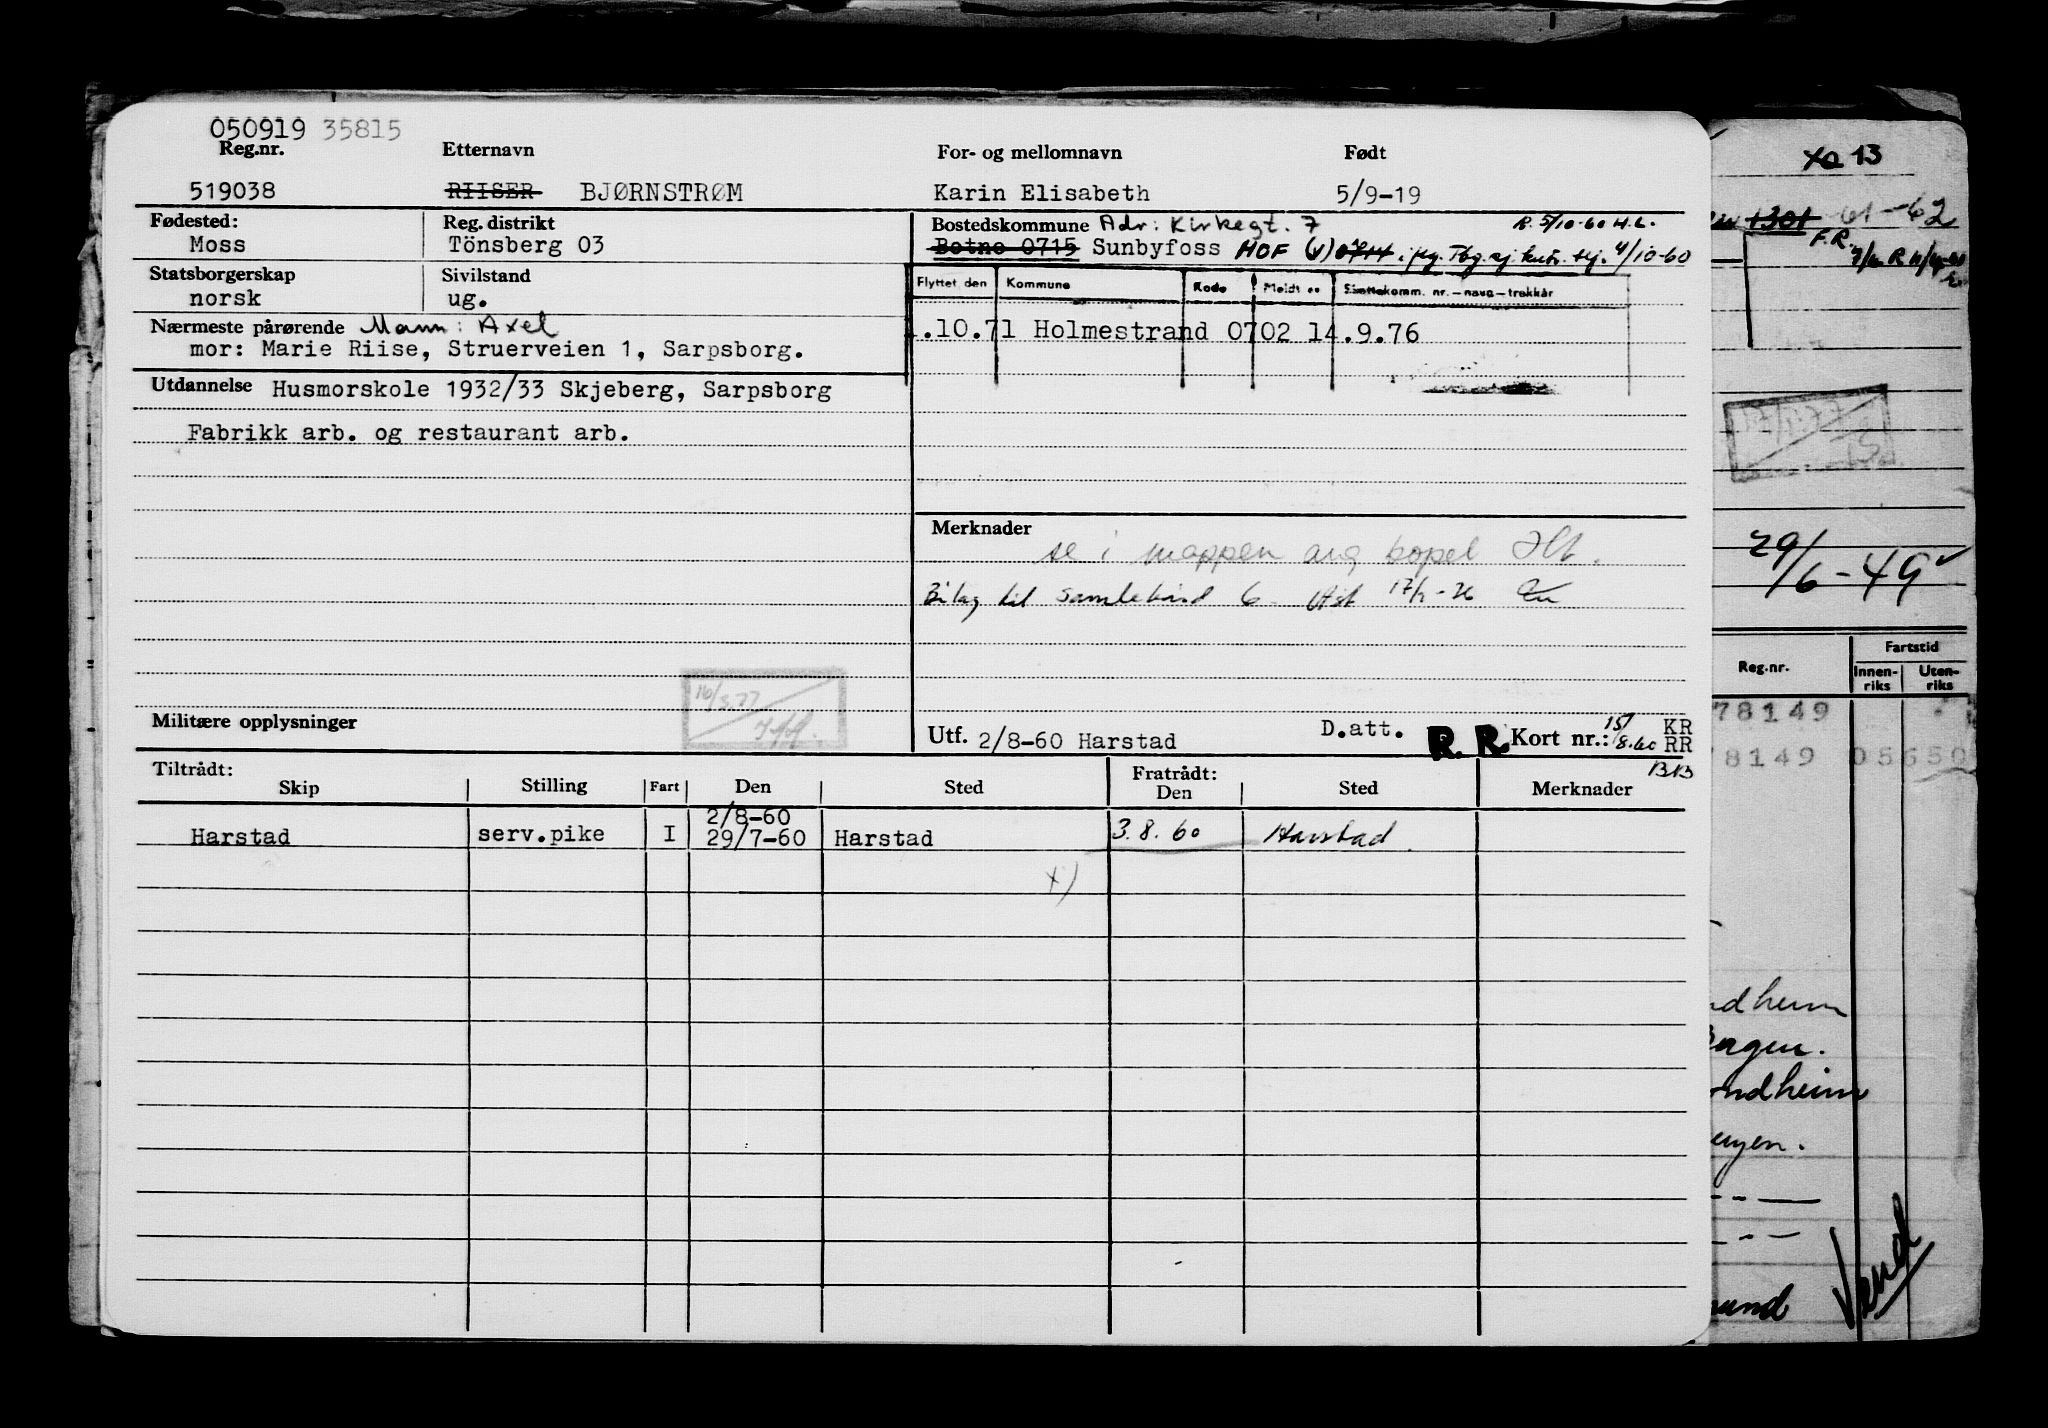 050919 35815
Reg.nr. Etternavn For- og mellomnavn Født
519038 RIISER BJØRNSTRØM Karin Elisabeth 5/9-19
Fødested: Reg. distrikt Bostedskommune Adr: Kirkegt. 7 R. 5/10-60 H.L.
Moss Tönsberg 03 Botne 0715 Sunbyfoss HOF (V) 0714. 4/10-60
Statsborgerskap Sivilstand Flyttet den Kommune Kode Meldt
norsk ug.
Nærmeste pårørende Mann: Axel .10.71 Holmestrand 0702 14.9.76
mor: Marie Riise, Struerveien 1, Sarpsborg.
Utdannelse Husmorskole 1932/33 Skjeberg, Sarpsborg
Fabrikk arb. og restaurant arb.
Merknader
se i mappen ang bopel
Bilag til samlebind 6
Militære opplysninger
Utf. 2/8-60 Harstad D.att. R. R. Kort nr.: 15/8.60 KR
RR
Tiltrådt: Fratrådt:
Skip Stilling Fart Den Sted Den Sted Merknader
2/8-60
Harstad serv.pike I 29/7-60 Harstad 3.8.60 Harstad
x)
13
1301 61-62
F.R.
29/6-49
Reg.nr. Fartstid
Innen-riks Uten-riks
78149
78149 05650
ndheim
ondheim
Vend